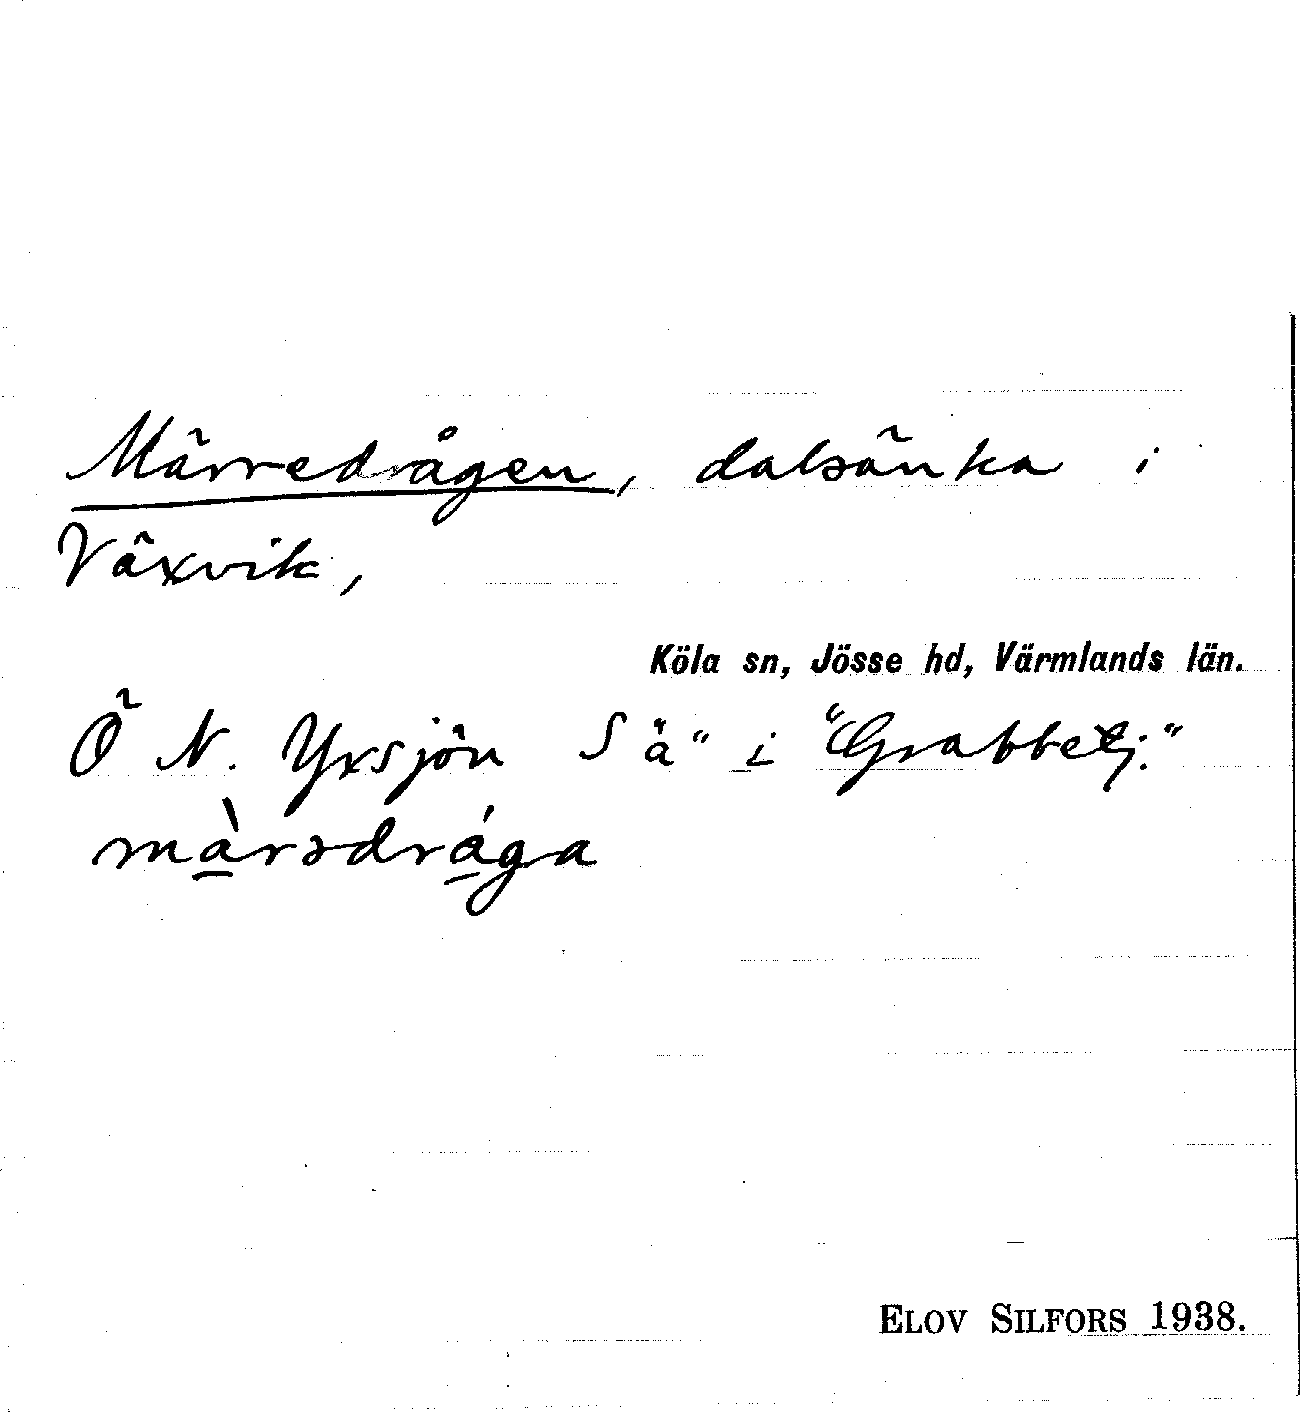 Märredrågen, dalsänka i
Växvik,
Köla sn, Jösse hd, Värmlands län.
Ö N. Yxsjön S ä" i "Grabbetj."
màrədrága
ELOV SILFORS 1938.